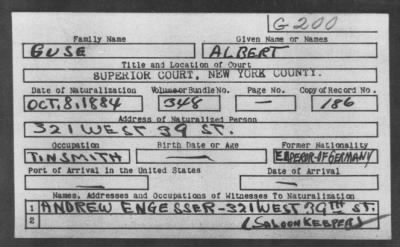 G 200
Family Name Given Name or Names
GUSE ALBERT
Title and Location of Court
SUPERIOR COURT, NEW YORK COUNTY.
Date of Naturalization Volume or Bundle No. Page No. Copy of Record No.
OCT. 8, 1884 348 — 186
Address of Naturalized Person
321 WEST 39 ST.
Occupation Birth Date or Age Former Nationality
TINSMITH — EMPEROR OF GERMANY
Port of Arrival in the United States Date of Arrival
— —
Names, Addresses and Occupations of Witnesses To Naturalization
1 ANDREW ENGESSER - 321 WEST 39TH ST.
2 (SALOON KEEPER)